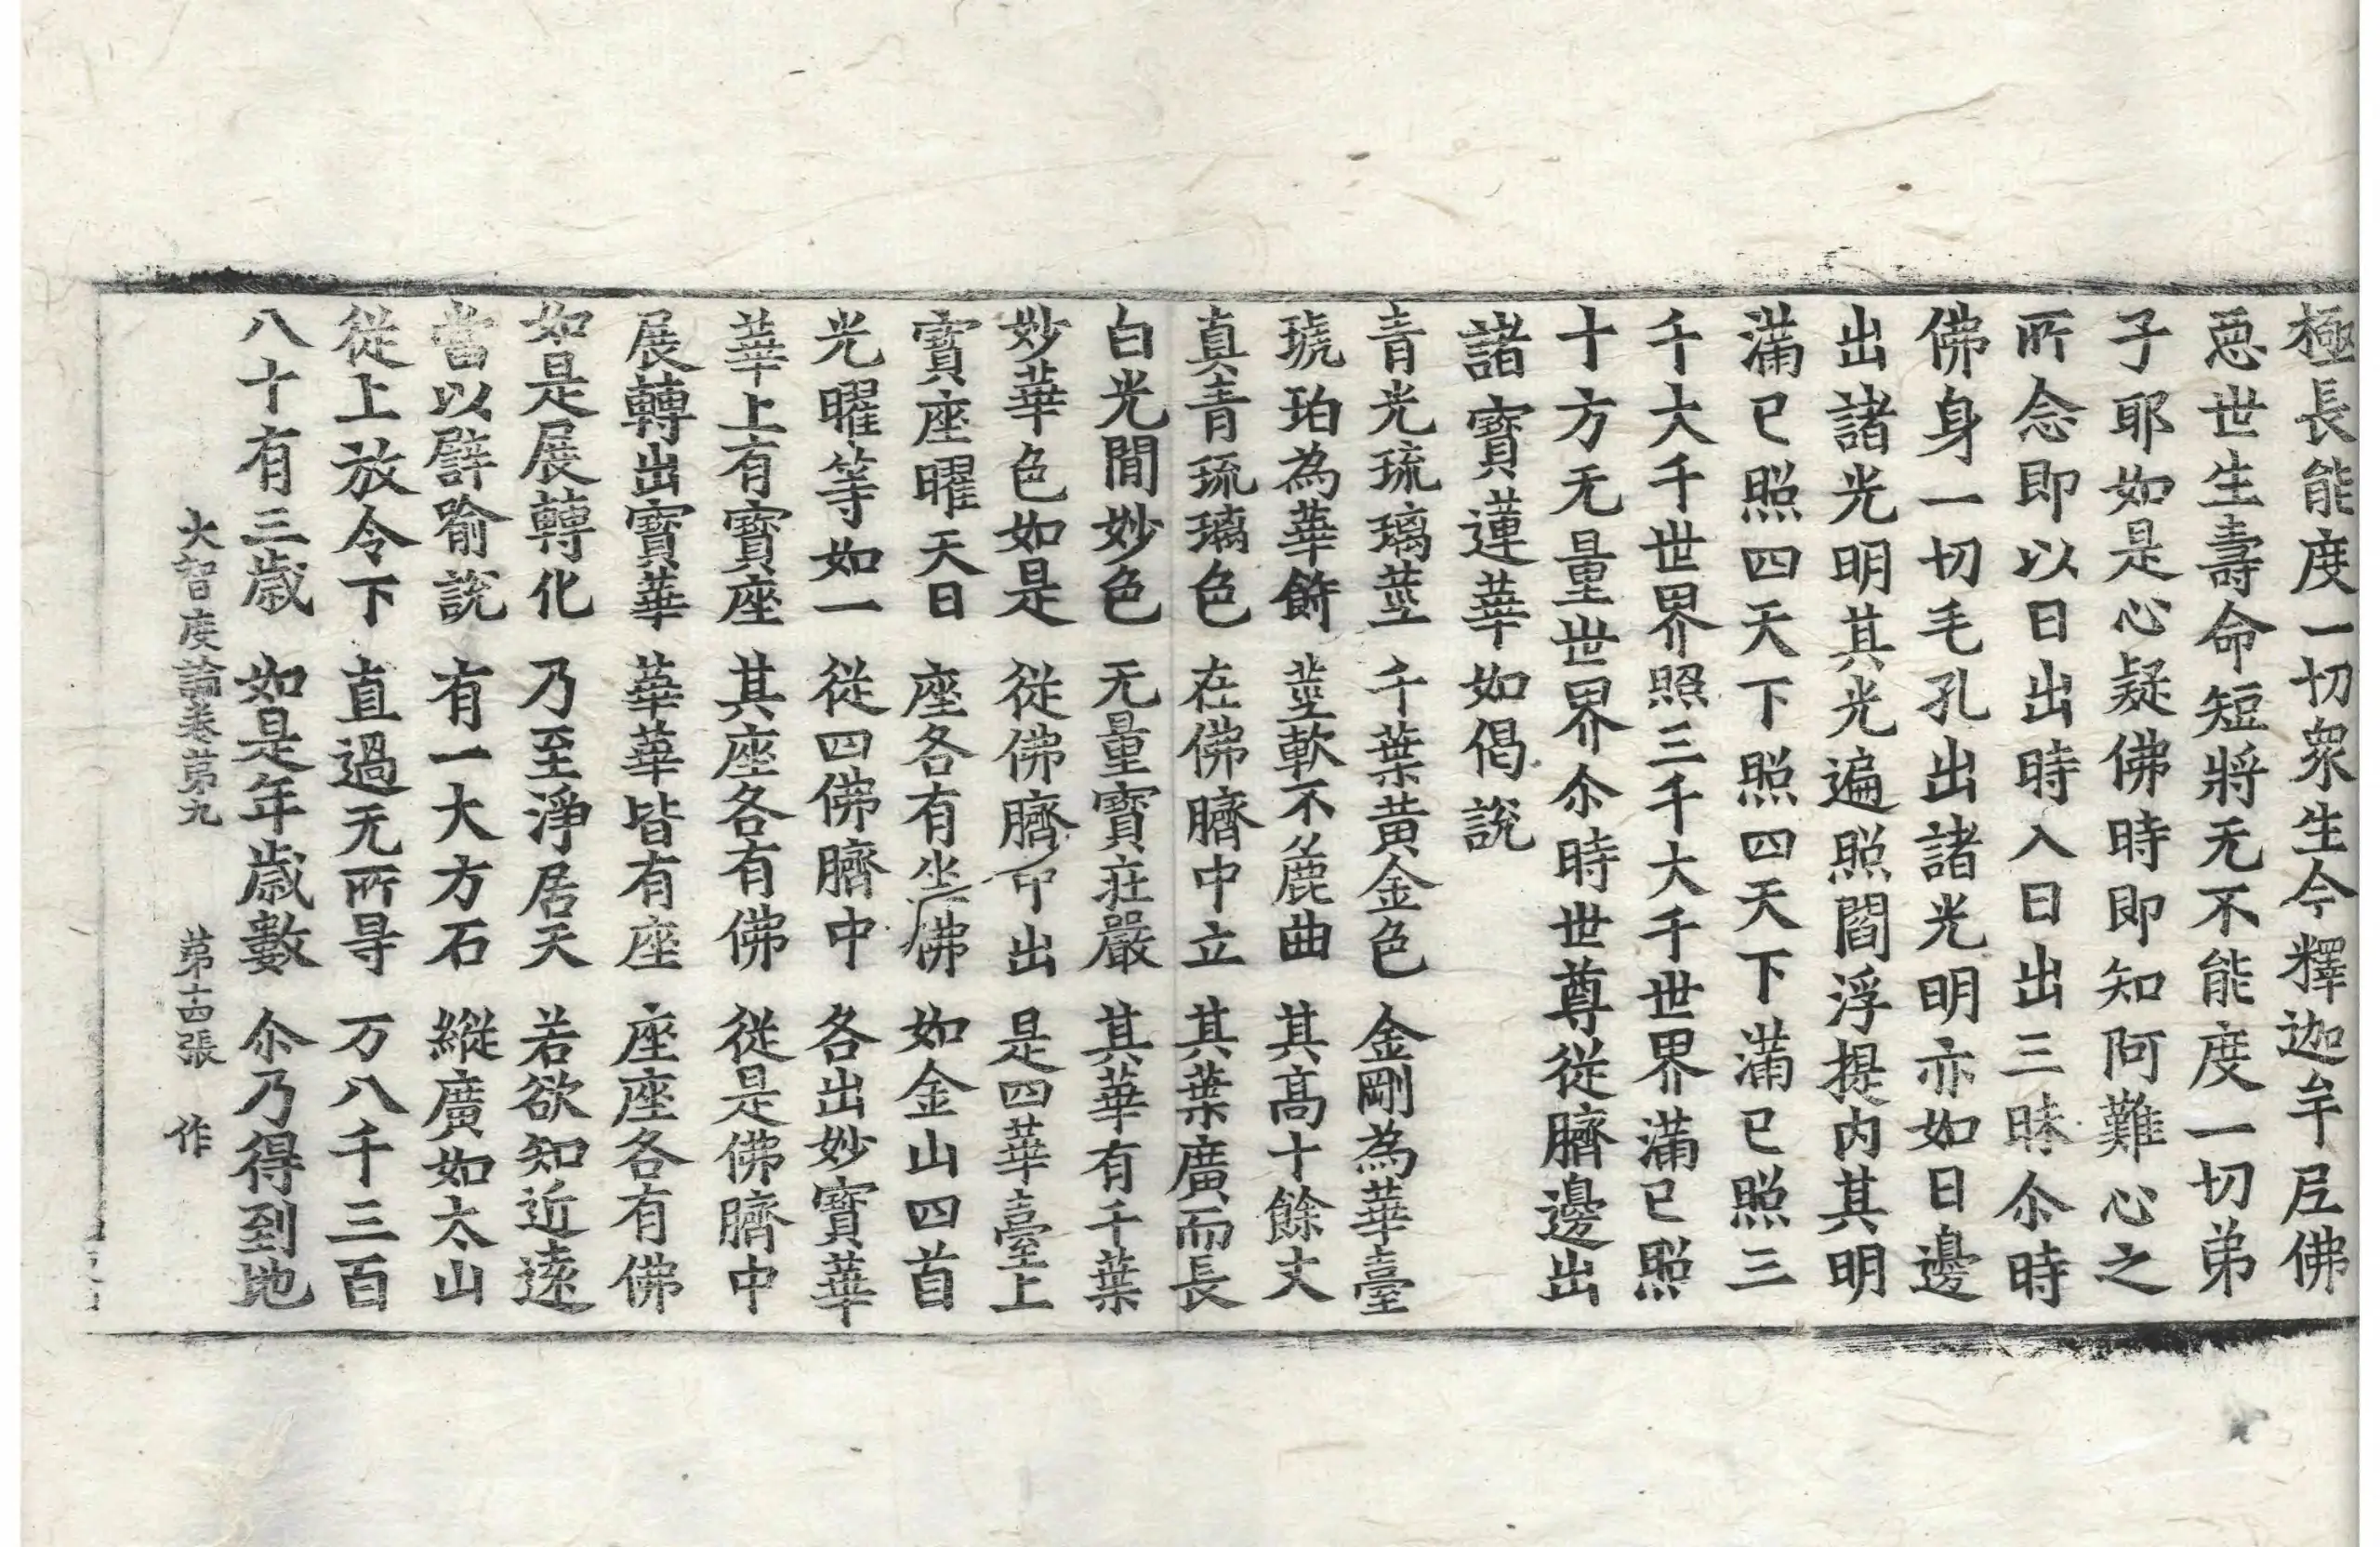 極長能度一切衆生今釋迦牟尼佛
惡世生壽命短將无不能度一切弟
子耶如是心疑佛時即知阿難心之
所念即以日出時入日出三昧尒時
佛身一切毛孔出諸光明亦如日邊
出諸光明其光遍照閻浮提内其明
滿已照四天下照四天下滿已照三
千大千世界照三千大千世界滿已照
十方无量世界尒時世尊從臍邊出
諸寶蓮華如偈說
青光琉璃莖 千葉黃金色 金剛為華臺
琥珀為華飾 莖軟不麁曲 其高十餘丈
真青琉璃色 在佛臍中立 其葉廣而長
白光間妙色 无量寶莊嚴 其華有千葉
妙華色如是 從佛臍中出 是四華臺上
寶座曜天日 座各有坐佛 如金山四首
光曜等如一 從四佛臍中 各出妙寶華
華上有寶座 其座各有佛 從是佛臍中
展轉出寶華 華華皆有座 座座各有佛
如是展轉化 乃至淨居天 若欲知近遠
當以譬喻說 有一大方石 縱廣如太山
從上放令下 直過无所㝵 万八千三百
八十有三歲 如是年歲數 尒乃得到地
大智度論卷第九 第十四張 作